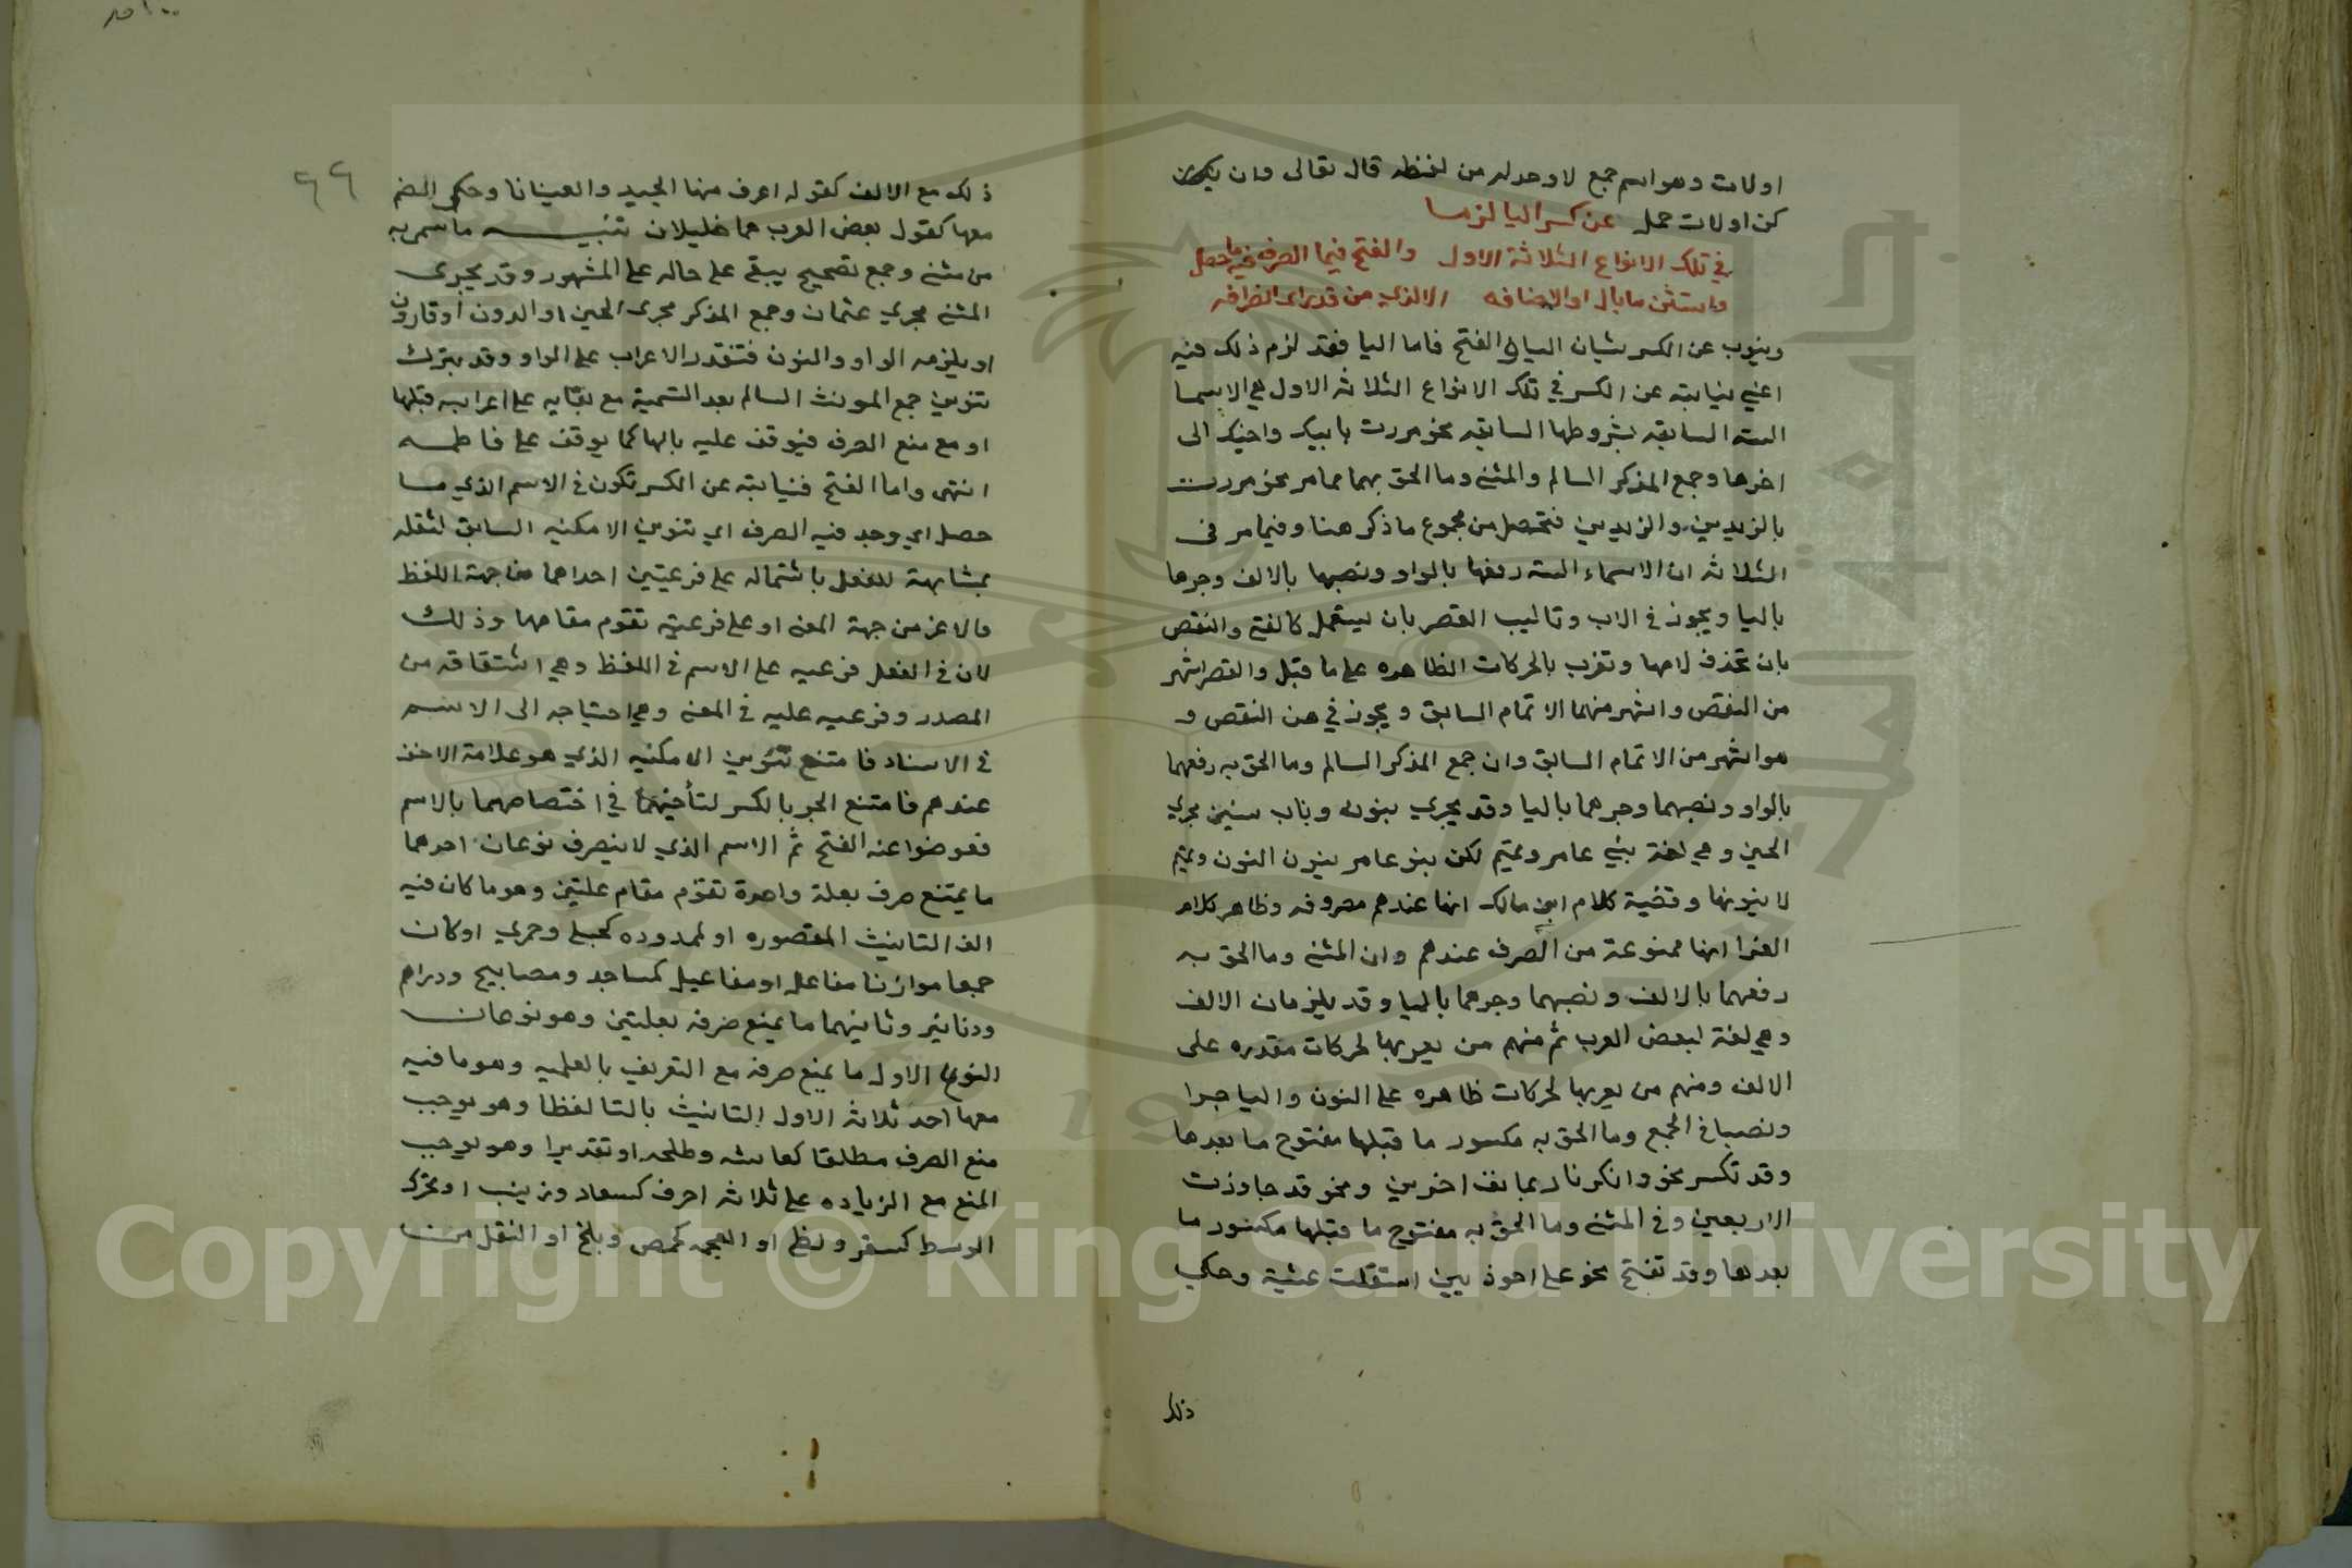 اولات وهو اسم جمع لا وحد له من لفظه قال تعالى وان يكن
كن اولات حمل عن كسر اليا لزما
في تلك الانواع الثلاثة الاول والفتح فيما الصرف فيه ما حصل
واستثن ما بال او الاضافه الا لذي من قد راى انصرافه
وينوب عن الكسر شيان اليا والفتح فاما اليا فقد لزم ذلك فيه
اعني نيابته عن الكسر في تلك الانواع الثلاثه الاول هي الاسما
السته السابقه بشروطها السابقه نحو مررت بابيك واخيك الى
اخرها وجمع المذكر السالم والمثنى وما الحق بهما مما مر نحو مررت
بالزيدين والزيدين فتحصل من مجموع ما ذكر هنا وفيما مر في
الثلاثه ان الاسماء السته رفعها بالواو ونصبها بالالف وجرها
باليا ويجوز في الاب وتالييه القصر بان يستعمل كالفتى والنقص
بان تحذف لامها وتعرب بالحركات الظاهره على ما قبل والقصر اشهر
من النقص واشهر منهما الاتمام السابق ويجوز في هن النقص و
هو اشهر من الاتمام السابق وان جمع المذكر السالم وما الحق به رفعهما
بالواو ونصبهما وجرهما باليا وقد يجري بنون وباب سنين مجري
الحين وهي لغة بني عامر وتميم لكن بنو عامر ينون النون وتميم
لا ينونها وقضية كلام ابن مالك انها عندهم مصروفه وظاهر كلام
الفرا انها ممنوعة من الصرف عندهم وان المثنى وما الحق به
رفعهما بالالف ونصبهما وجرهما باليا وقد يلزمان الالف
وهي لغة لبعض العرب ثم منهم من يعربها بحركات مقدره على
الالف ومنهم من يعربها بحركات ظاهره على النون واليا جرا
ونصبا في الجمع وما الحق به مكسور ما قبلها مفتوح ما بعدها
وقد تكسر نحو وانكرنا زعانف اخرين ونحو قد جاوزت
الاربعين وفي المثنى وما الحق به مفتوح ما قبلها مكسور ما
بعدها وقد تفتح نحو على احوذيين استقلت عشية وحكي
ذلك
٦٦
ذلك مع الالف كقوله اعرف منها الجيد والعينانا وحكي الضم
معها كقول بعض العرب هما خليلان تنبيه ما سمي به
من مثنى وجمع تصحيح يبقى على حاله على المشهور وقد يجرى
المثنى مجري عثمان وجمع المذكر مجرى الحين او الدون او قارون
او يلزمه الواو والنون فتقدر الاعراب على الواو وقد يترك
تنوين جمع المونث السالم بعد التسمية مع بقايه على اعرابه قبلها
او مع منع الصرف فيوقف عليه بالها كما يوقف على فاطمه
انتهى واما الفتح فنيابته عن الكسر تكون في الاسم الذي ما
حصل اي وجد فيه الصرف اي تنوين الامكنيه السابق لثقله
بمشابهة للفعل باشتماله على فرعيتين احداهما من جهة اللفظ
والاخر من جهة المعنى او على فرعية تقوم مقامهما وذلك
لان في الفعل فرعيه على الاسم في اللفظ وهي اشتقاقه من
المصدر وفرعيه عليه في المعنى وهي احتياجه الى الاسم
في الاسناد فامتنع تنوين الامكنيه الذي هو علامة الاخف
عندهم فامتنع الجر بالكسر لتأخيهما في اختصاصهما بالاسم
فعوضوا عنه الفتح ثم الاسم الذي لا ينصرف نوعان احدهما
ما يمتنع صرفه بعلة واحدة تقوم مقام علتين وهو ما كان فيه
الف التانيث المقصوره او الممدوده كحبلى وحمرى او كان
جمعا موازنا مفاعل او مفاعيل كمساجد ومصابيح ودراهم
ودنانير وثانيهما ما يمنع صرفه بعلتين وهو نوعان
النوع الاول ما يمنع صرفه مع التعريف بالعلميه وهو ما فيه
معها احد ثلاثه الاول التانيث بالتا لفظا وهو يوجب
منع الصرف مطلقا كعايشه وطلحه او تقديرا وهو يوجب
المنع مع الزياده على ثلاثه احرف كسعاد وزينب او تحرك
الوسط كسقر ولظى او العجمه كحمص وبلخ او النقل من
Copyright © King Saud University